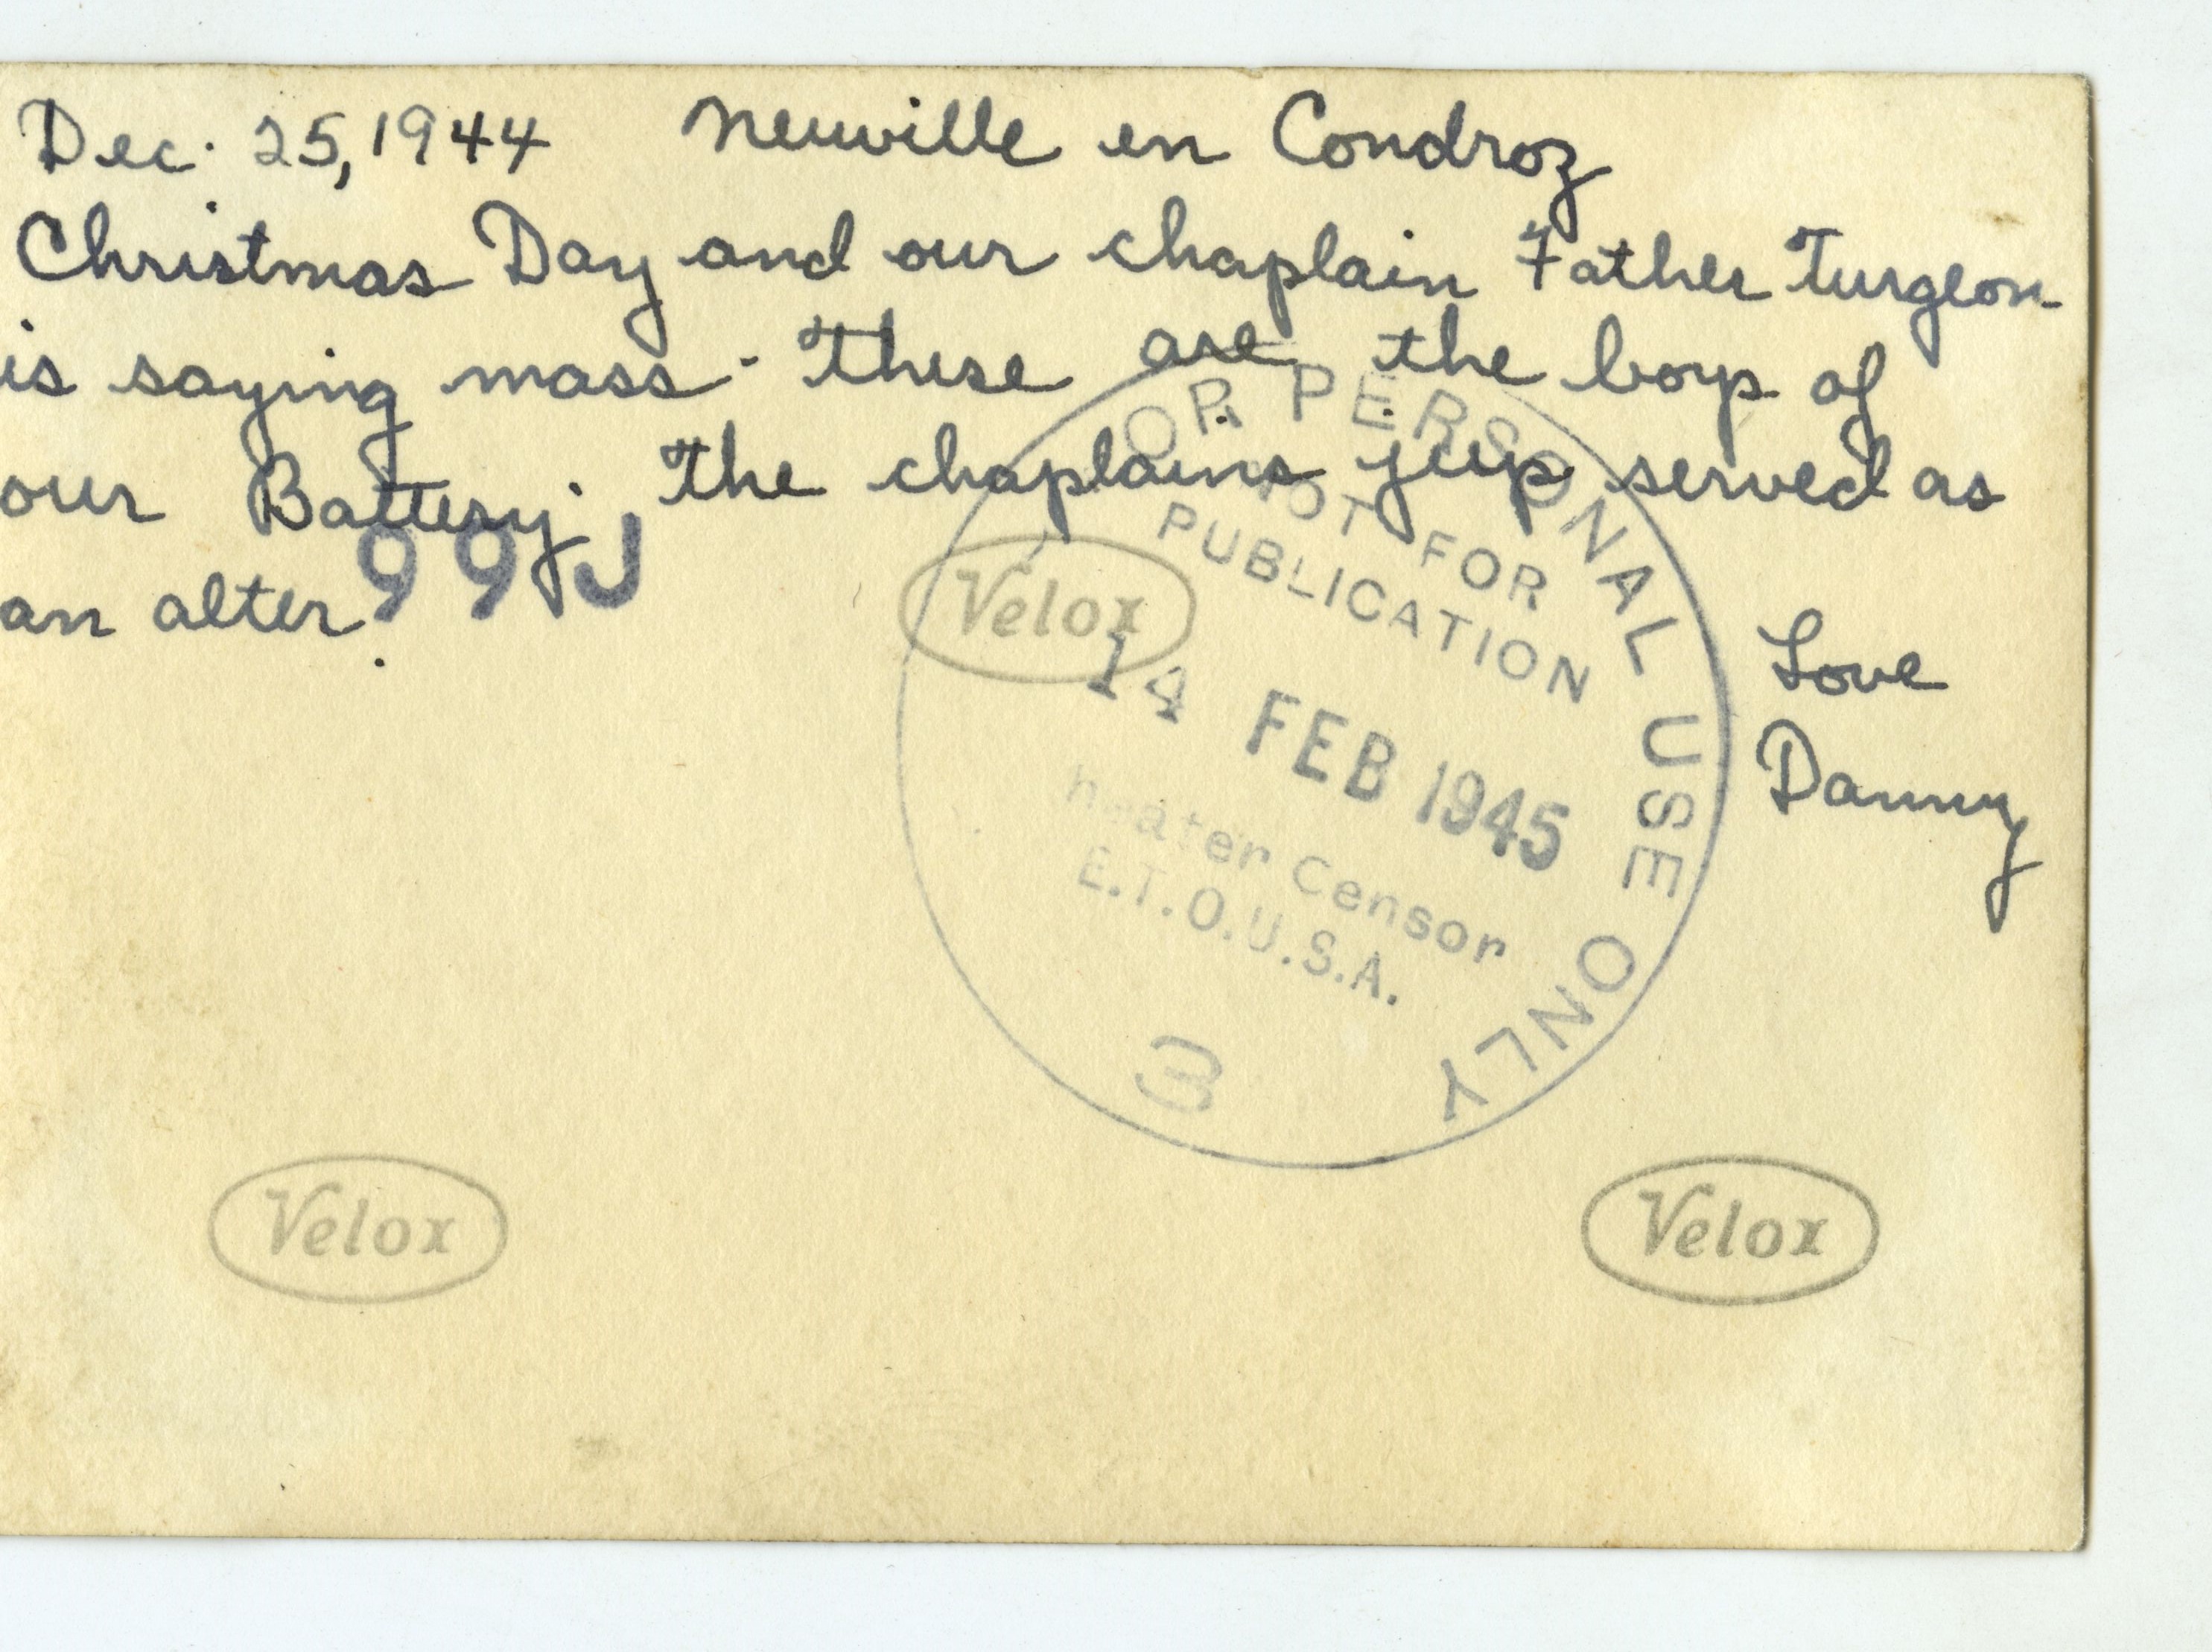 Dec. 25, 1944 Neuville en Condroz
Christmas Day and our chaplain Father Turgeon
is saying mass. These are the boys of
our Battery. The chaplains jeep served as
an alter.
99J
Love
Danny
OR PERSONAL USE ONLY
NOT FOR
PUBLICATION
14 FEB 1945
heater Censor
E.T.O.U.S.A.
3
Velox
Velox
Velox